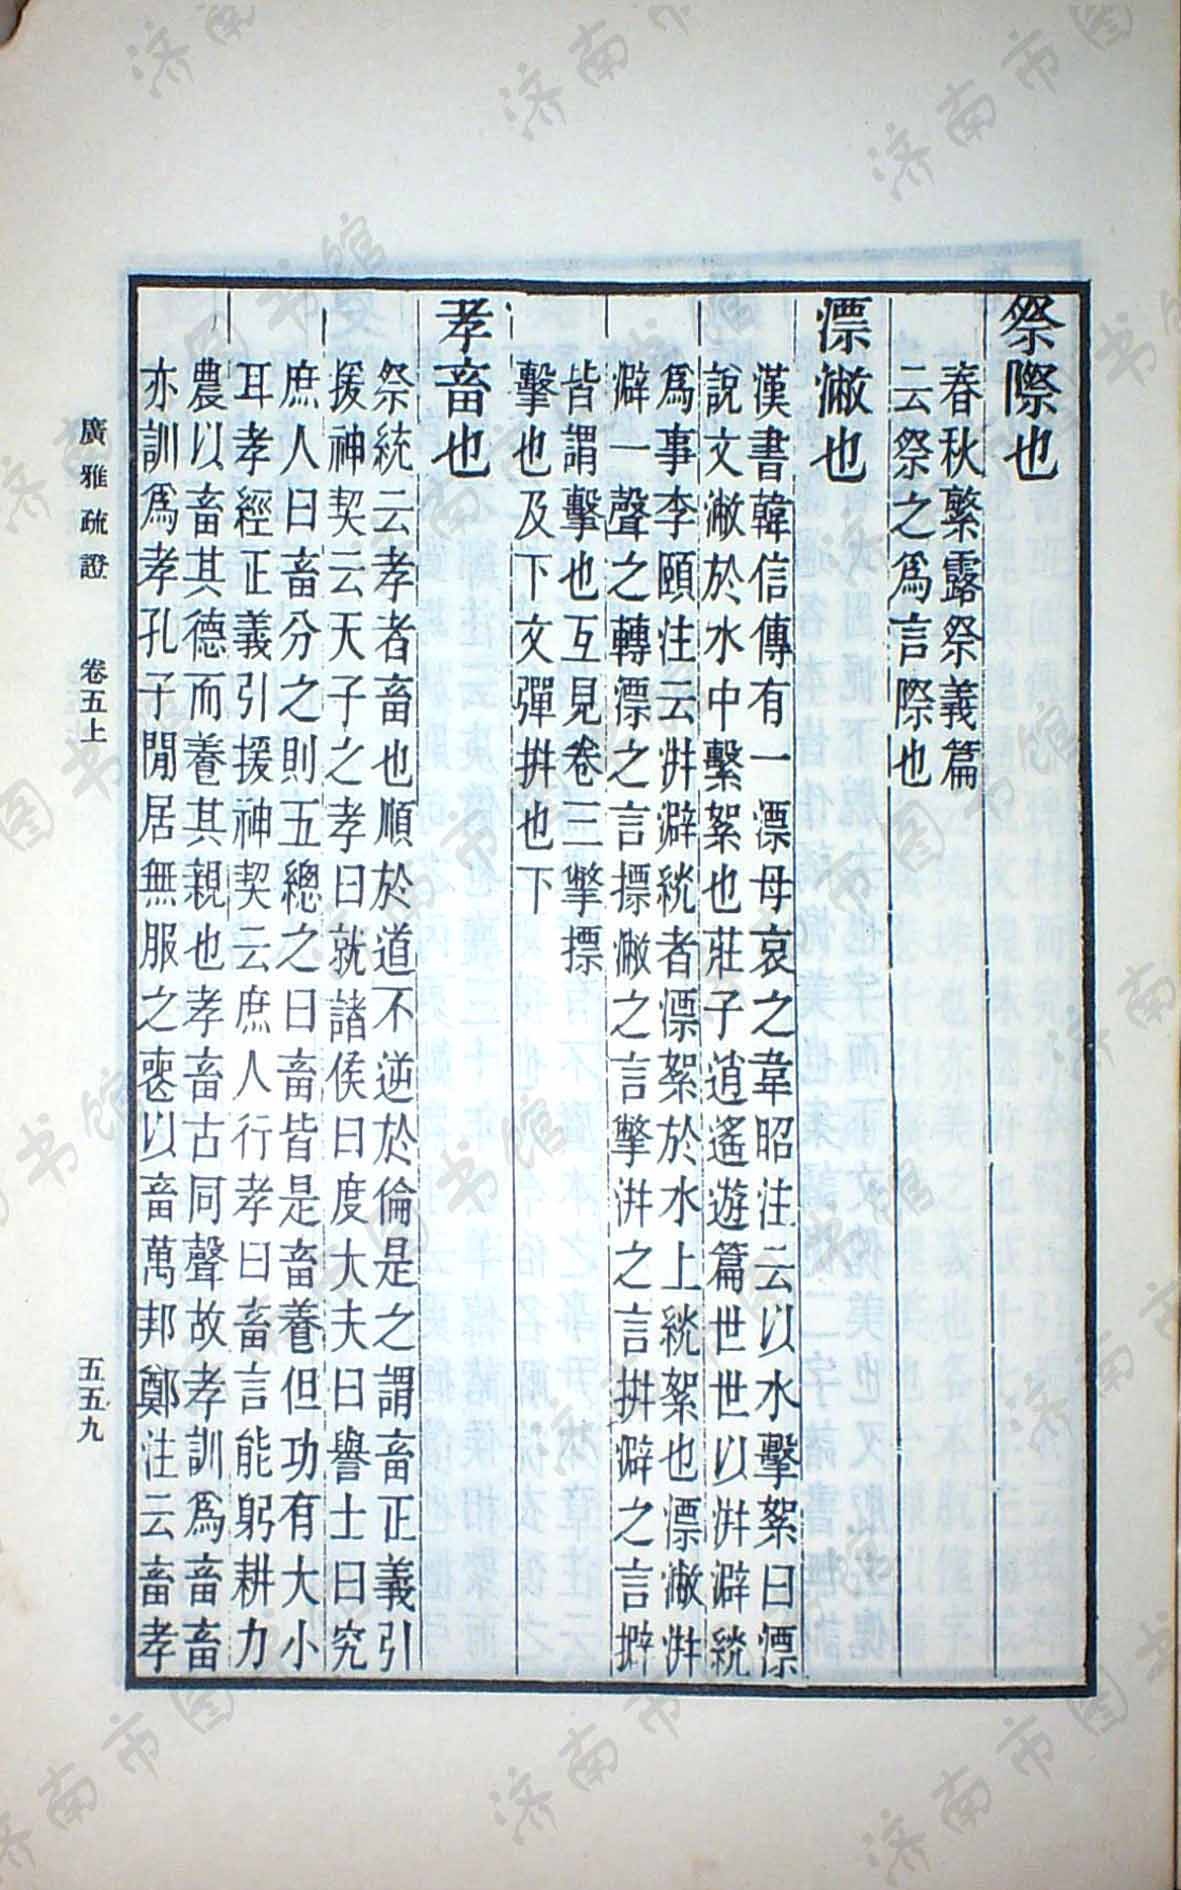 祭際也
春秋繁露祭義篇
云祭之爲言際也
漂潎也
漢書韓信傳有一漂母哀之韋昭注云以水擊絮曰漂
說文潎於水中擊絮也莊子逍遙遊篇世世以洴澼絖
爲事李頤注云洴澼絖者漂絮於水上絖絮也漂潎洴
澼一聲之轉漂之言摽潎之言擎洴之言拼澼之言擗
皆謂擊也互見卷三擎摽
擊也及下文彈拼也下
孝畜也
祭統云孝者畜也順於道不逆於倫是之謂畜正義引
援神契云天子之孝曰就諸侯曰度大夫曰譽士曰究
庶人曰畜分之則五總之曰畜皆是畜養但功有大小
耳孝經正義引援神契云庶人行孝曰畜言能躬耕力
農以畜其德而養其親也孝畜古同聲故孝訓爲畜畜
亦訓爲孝孔子閒居無服之喪以畜萬邦鄭注云畜孝
廣雅疏證 卷五上 五五九
济南市图书馆